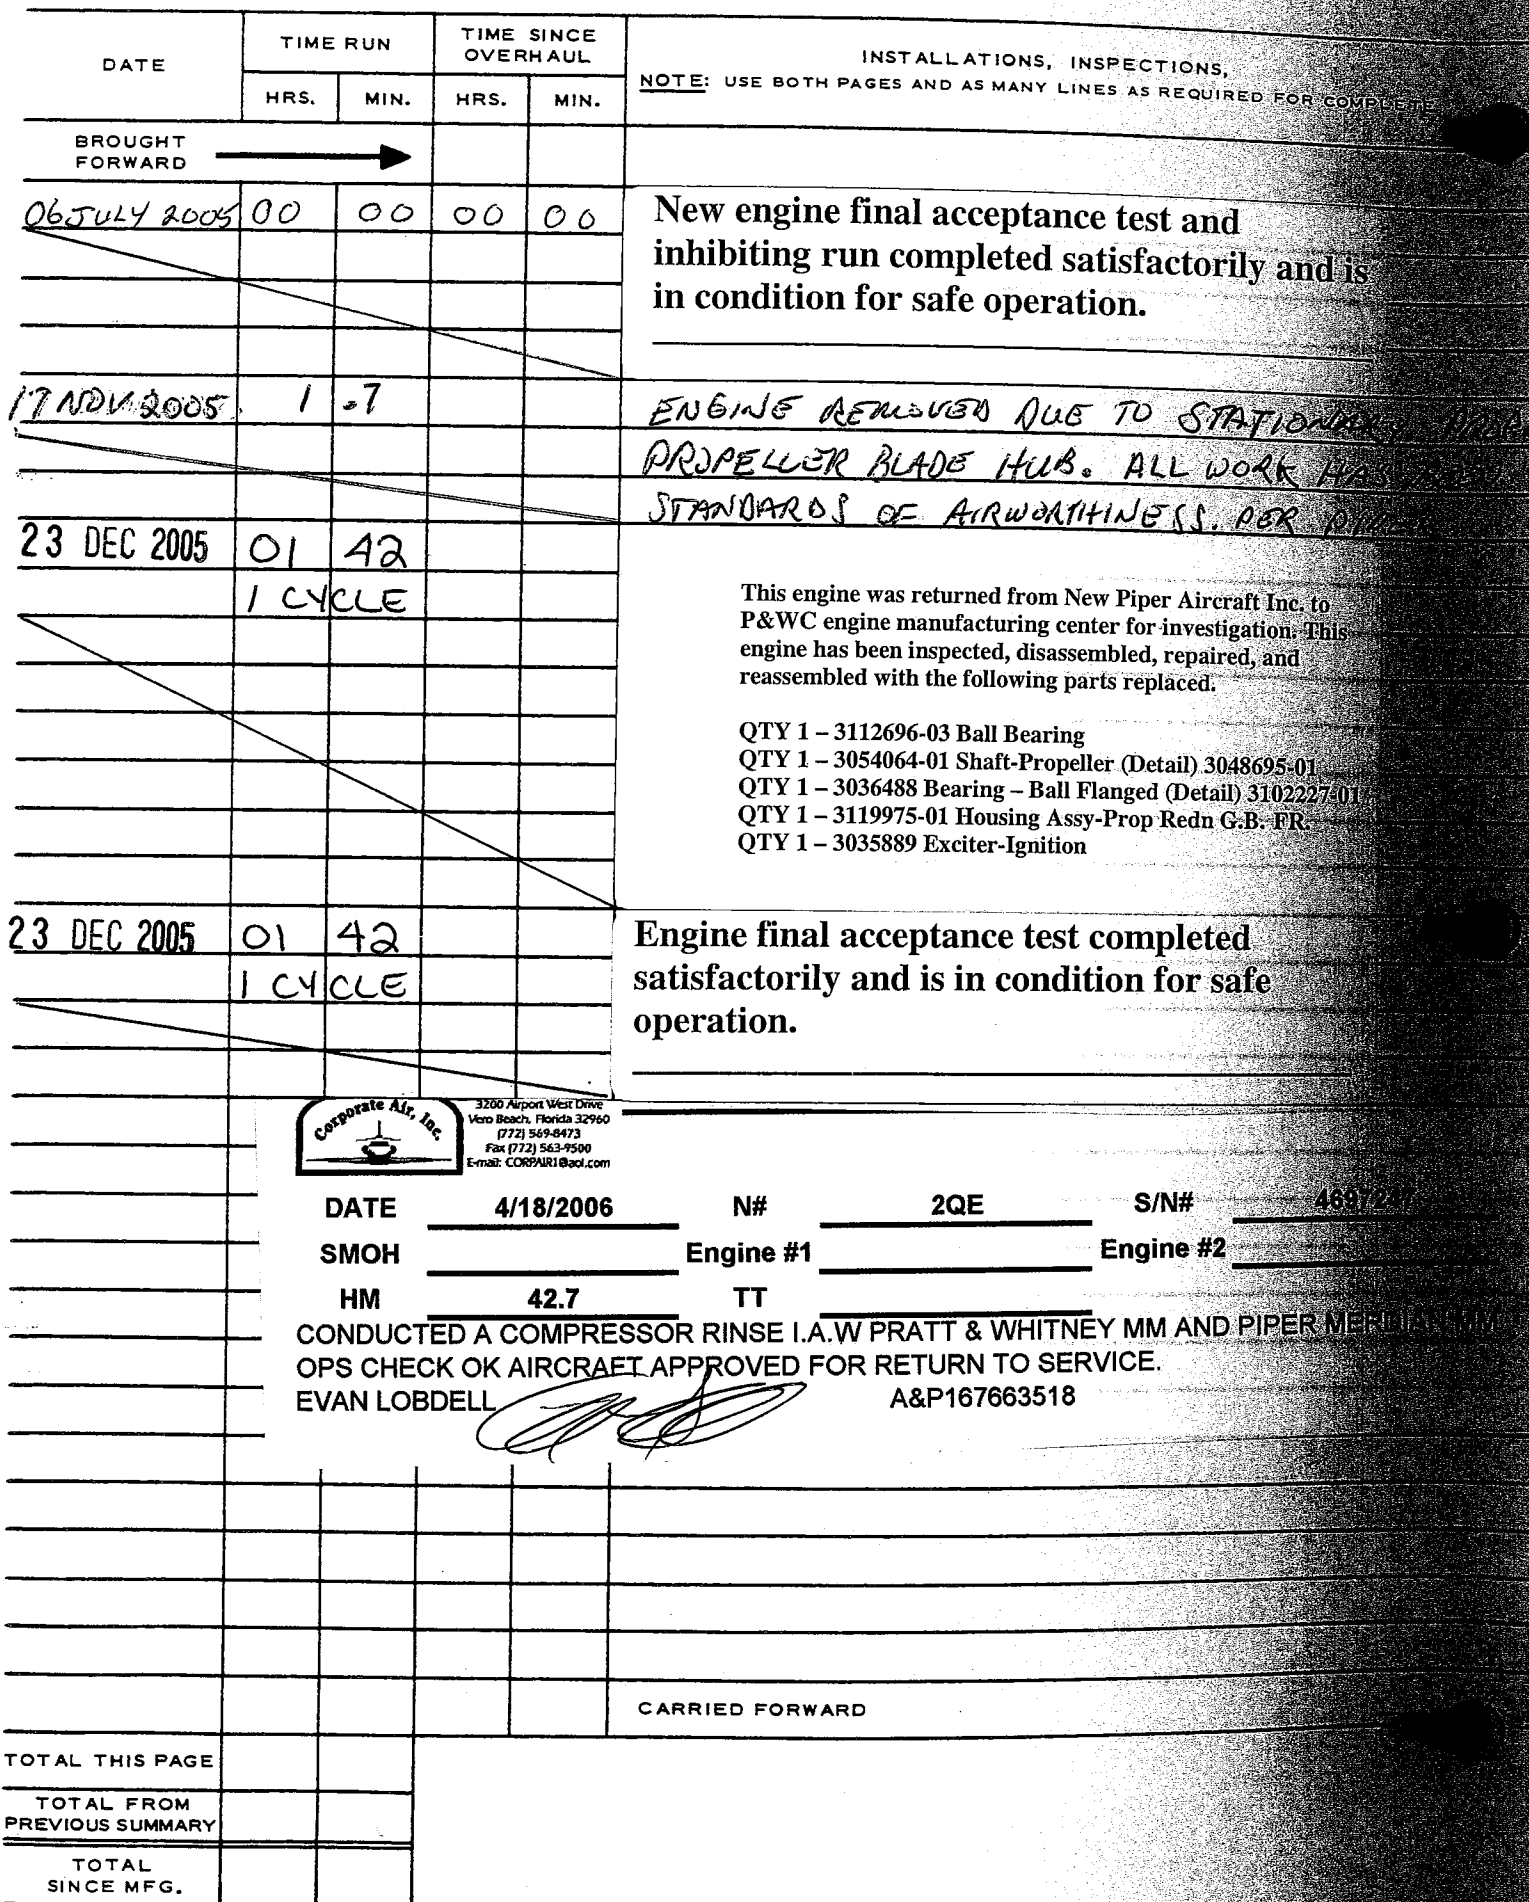 DATE
TIME RUN
TIME SINCE
OVERHAUL
INSTALLATIONS, INSPECTIONS,
NOTE: USE BOTH PAGES AND AS MANY LINES AS REQUIRED FOR COMPLETE
HRS. MIN. HRS. MIN.
BROUGHT
FORWARD
06 JULY 2005 00 00 00 00
New engine final acceptance test and
inhibiting run completed satisfactorily and is
in condition for safe operation.
17 NOV 2005 1 .7 ENGINE REMOVED DUE TO
PROPELLER BLADE HUB. ALL WORK HAS
STANDARDS OF AIRWORTHINESS. PER
23 DEC 2005 01 42
1 CYCLE
This engine was returned from New Piper Aircraft Inc. to
P&WC engine manufacturing center for investigation. This
engine has been inspected, disassembled, repaired, and
reassembled with the following parts replaced.
QTY 1 – 3112696-03 Ball Bearing
QTY 1 – 3054064-01 Shaft-Propeller (Detail) 3048695-01
QTY 1 – 3036488 Bearing – Ball Flanged (Detail) 3102227-01
QTY 1 – 3119975-01 Housing Assy-Prop Redn G.B. FR.
QTY 1 – 3035889 Exciter-Ignition
23 DEC 2005 01 42
1 CYCLE
Engine final acceptance test completed
satisfactorily and is in condition for safe
operation.
Corporate Air, Inc.
3200 Airport West Drive
Vero Beach, Florida 32960
(772) 569-8473
Fax (772) 563-9500
E-mail: CORPAIR1@aol.com
DATE 4/18/2006 N# 2QE S/N# 4697247
SMOH Engine #1 Engine #2
HM 42.7 TT
CONDUCTED A COMPRESSOR RINSE I.A.W PRATT & WHITNEY MM AND PIPER MERDIAN MM
OPS CHECK OK AIRCRAFT APPROVED FOR RETURN TO SERVICE.
EVAN LOBDELL A&P167663518
CARRIED FORWARD
TOTAL THIS PAGE
TOTAL FROM
PREVIOUS SUMMARY
TOTAL
SINCE MFG.